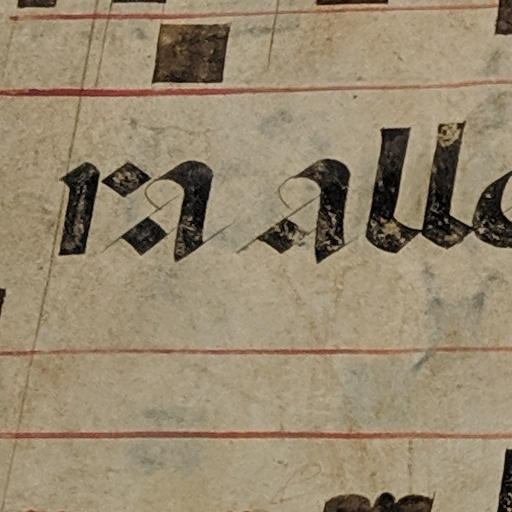 ra alle